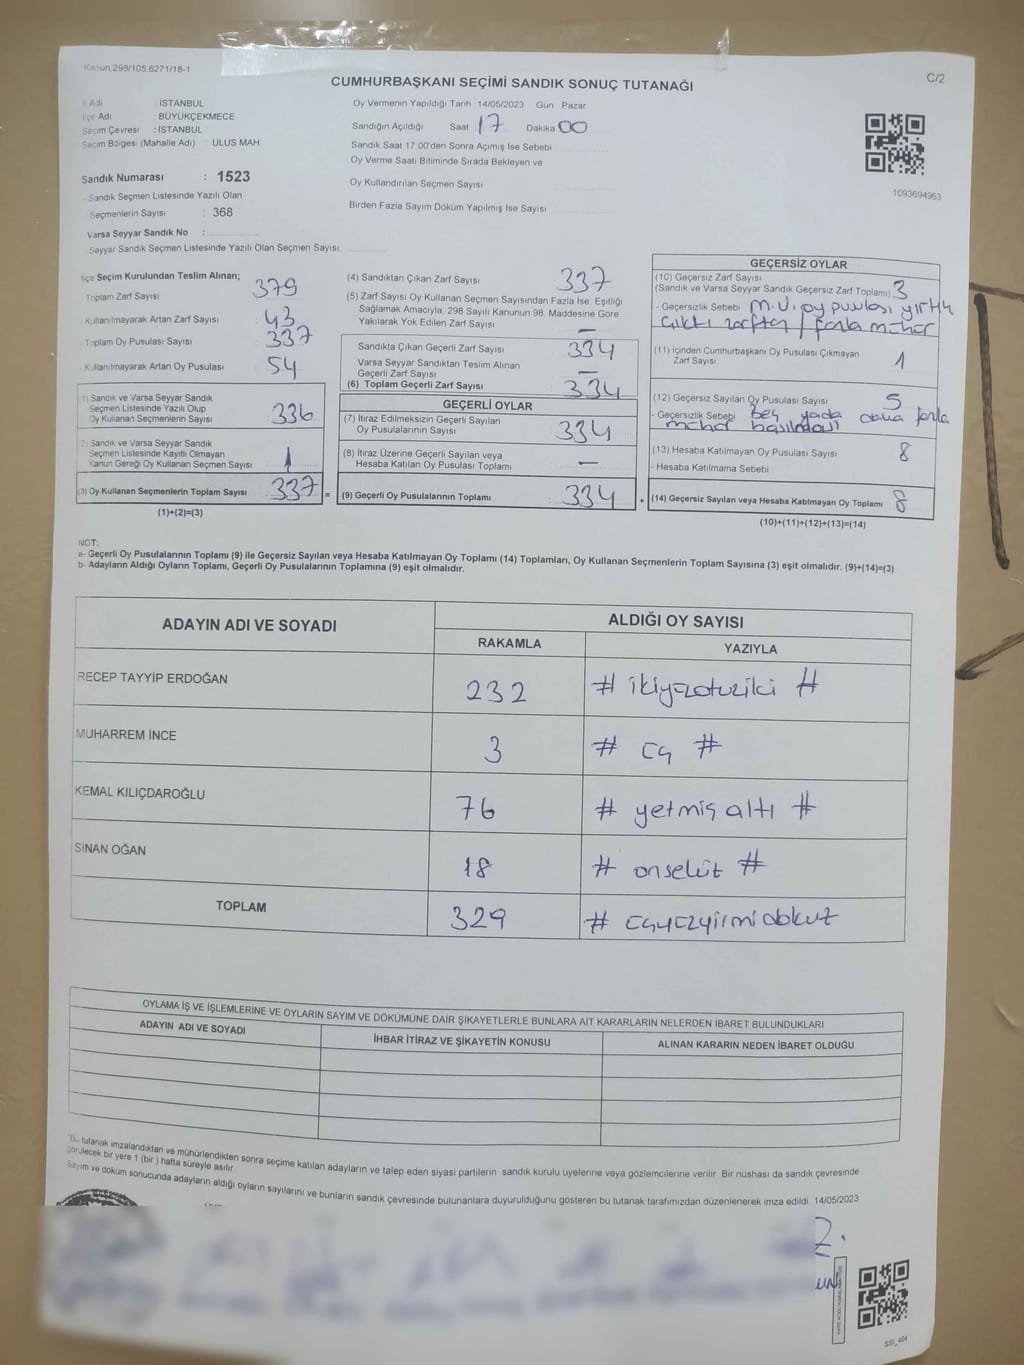 Kanun:298/105:6271/18-1
C/2
CUMHURBAŞKANI SEÇİMİ SANDIK SONUÇ TUTANAĞI
İl Adı : İSTANBUL
İlçe Adı : BÜYÜKÇEKMECE
Seçim Çevresi : İSTANBUL
Seçim Bölgesi (Mahalle Adı) : ULUS MAH.
Sandık Numarası : 1523
Sandık Seçmen Listesinde Yazılı Olan
Seçmenlerin Sayısı : 368
Varsa Seyyar Sandık No :
Seyyar Sandık Seçmen Listesinde Yazılı Olan Seçmen Sayısı:
Oy Vermenin Yapıldığı Tarih 14/05/2023 Gün Pazar
Sandığın Açıldığı Saat 17 Dakika 00
Sandık Saat 17:00'den Sonra Açımış İse Sebebi
Oy Verme Saati Bitiminde Sırada Bekleyen ve
Oy Kullandırılan Seçmen Sayısı
Birden Fazla Sayım Döküm Yapılmış İse Sayısı
1093694963
İlçe Seçim Kurulundan Teslim Alınan;
Toplam Zarf Sayısı 379
Kullanılmayarak Artan Zarf Sayısı 43
Toplam Oy Pusulası Sayısı 337
Kullanılmayarak Artan Oy Pusulası 54
(1) Sandık ve Varsa Seyyar Sandık
Seçmen Listesinde Yazılı Olup
Oy Kullanan Seçmenlerin Sayısı 336
(2) Sandık ve Varsa Seyyar Sandık
Seçmen Listesinde Kayıtlı Olmayan
Kanun Gereği Oy Kullanan Seçmen Sayısı 1
(3) Oy Kullanan Seçmenlerin Toplam Sayısı 337 =
(1)+(2)=(3)
(4) Sandıktan Çıkan Zarf Sayısı 337
(5) Zarf Sayısı Oy Kullanan Seçmen Sayısından Fazla İse, Eşitliği
Sağlamak Amacıyla, 298 Sayılı Kanunun 98. Maddesine Göre
Yakılarak Yok Edilen Zarf Sayısı —
Sandıkta Çıkan Geçerli Zarf Sayısı 334
Varsa Seyyar Sandıktan Teslim Alınan
Geçerli Zarf Sayısı —
(6) Toplam Geçerli Zarf Sayısı 334
GEÇERLİ OYLAR
(7) İtiraz Edilmeksizin Geçerli Sayılan
Oy Pusulalarının Sayısı 334
(8) İtiraz Üzerine Geçerli Sayılan veya
Hesaba Katılan Oy Pusulası Toplamı —
(9) Geçerli Oy Pusulalarının Toplamı 334 +
GEÇERSİZ OYLAR
(10) Geçersiz Zarf Sayısı
(Sandık ve Varsa Seyyar Sandık Geçersiz Zarf Toplamı) 3
- Geçersizlik Sebebi M.V. oy pusulası yırtık
çıktı zarftan / fazla mühür
(11) İçinden Cumhurbaşkanı Oy Pusulası Çıkmayan
Zarf Sayısı 1
(12) Geçersiz Sayılan Oy Pusulası Sayısı 5
- Geçersizlik Sebebi Beş yada daha fazla
mühür basılması
(13) Hesaba Katılmayan Oy Pusulası Sayısı 8
- Hesaba Katılmama Sebebi
(14) Geçersiz Sayılan veya Hesaba Katılmayan Oy Toplamı 8
(10)+(11)+(12)+(13)=(14)
NOT:
a- Geçerli Oy Pusulalarının Toplamı (9) ile Geçersiz Sayılan veya Hesaba Katılmayan Oy Toplamı (14) Toplamları, Oy Kullanan Seçmenlerin Toplam Sayısına (3) eşit olmalıdır. (9)+(14)=(3)
b- Adayların Aldığı Oyların Toplamı, Geçerli Oy Pusulalarının Toplamına (9) eşit olmalıdır.
ADAYIN ADI VE SOYADI
ALDIĞI OY SAYISI
RAKAMLA YAZIYLA
RECEP TAYYİP ERDOĞAN 232 # ikiyüzotuziki #
MUHARREM İNCE 3 # üç #
KEMAL KILIÇDAROĞLU 76 # yetmiş altı #
SİNAN OĞAN 18 # onsekiz #
TOPLAM 329 # üçyüzyirmidokuz
OYLAMA İŞ VE İŞLEMLERİNE VE OYLARIN SAYIM VE DÖKÜMÜNE DAİR ŞİKAYETLERLE BUNLARA AİT KARARLARIN NELERDEN İBARET BULUNDUKLARI
ADAYIN ADI VE SOYADI İHBAR İTİRAZ VE ŞİKAYETİN KONUSU ALINAN KARARIN NEDEN İBARET OLDUĞU
*Bu tutanak imzalandıktan ve mühürlendikten sonra seçime katılan adayların ve talep eden siyasi partilerin sandık kurulu üyelerine veya gözlemcilerine verilir. Bir nüshası da sandık çevresinde
görülecek bir yere 1 (bir) hafta süreyle asılır.
Sayım ve döküm sonucunda adayların aldığı oyların sayılarını ve bunların sandık çevresinde bulunanlara duyurulduğunu gösteren bu tutanak tarafımızdan düzenlenerek imza edildi. 14/05/2023